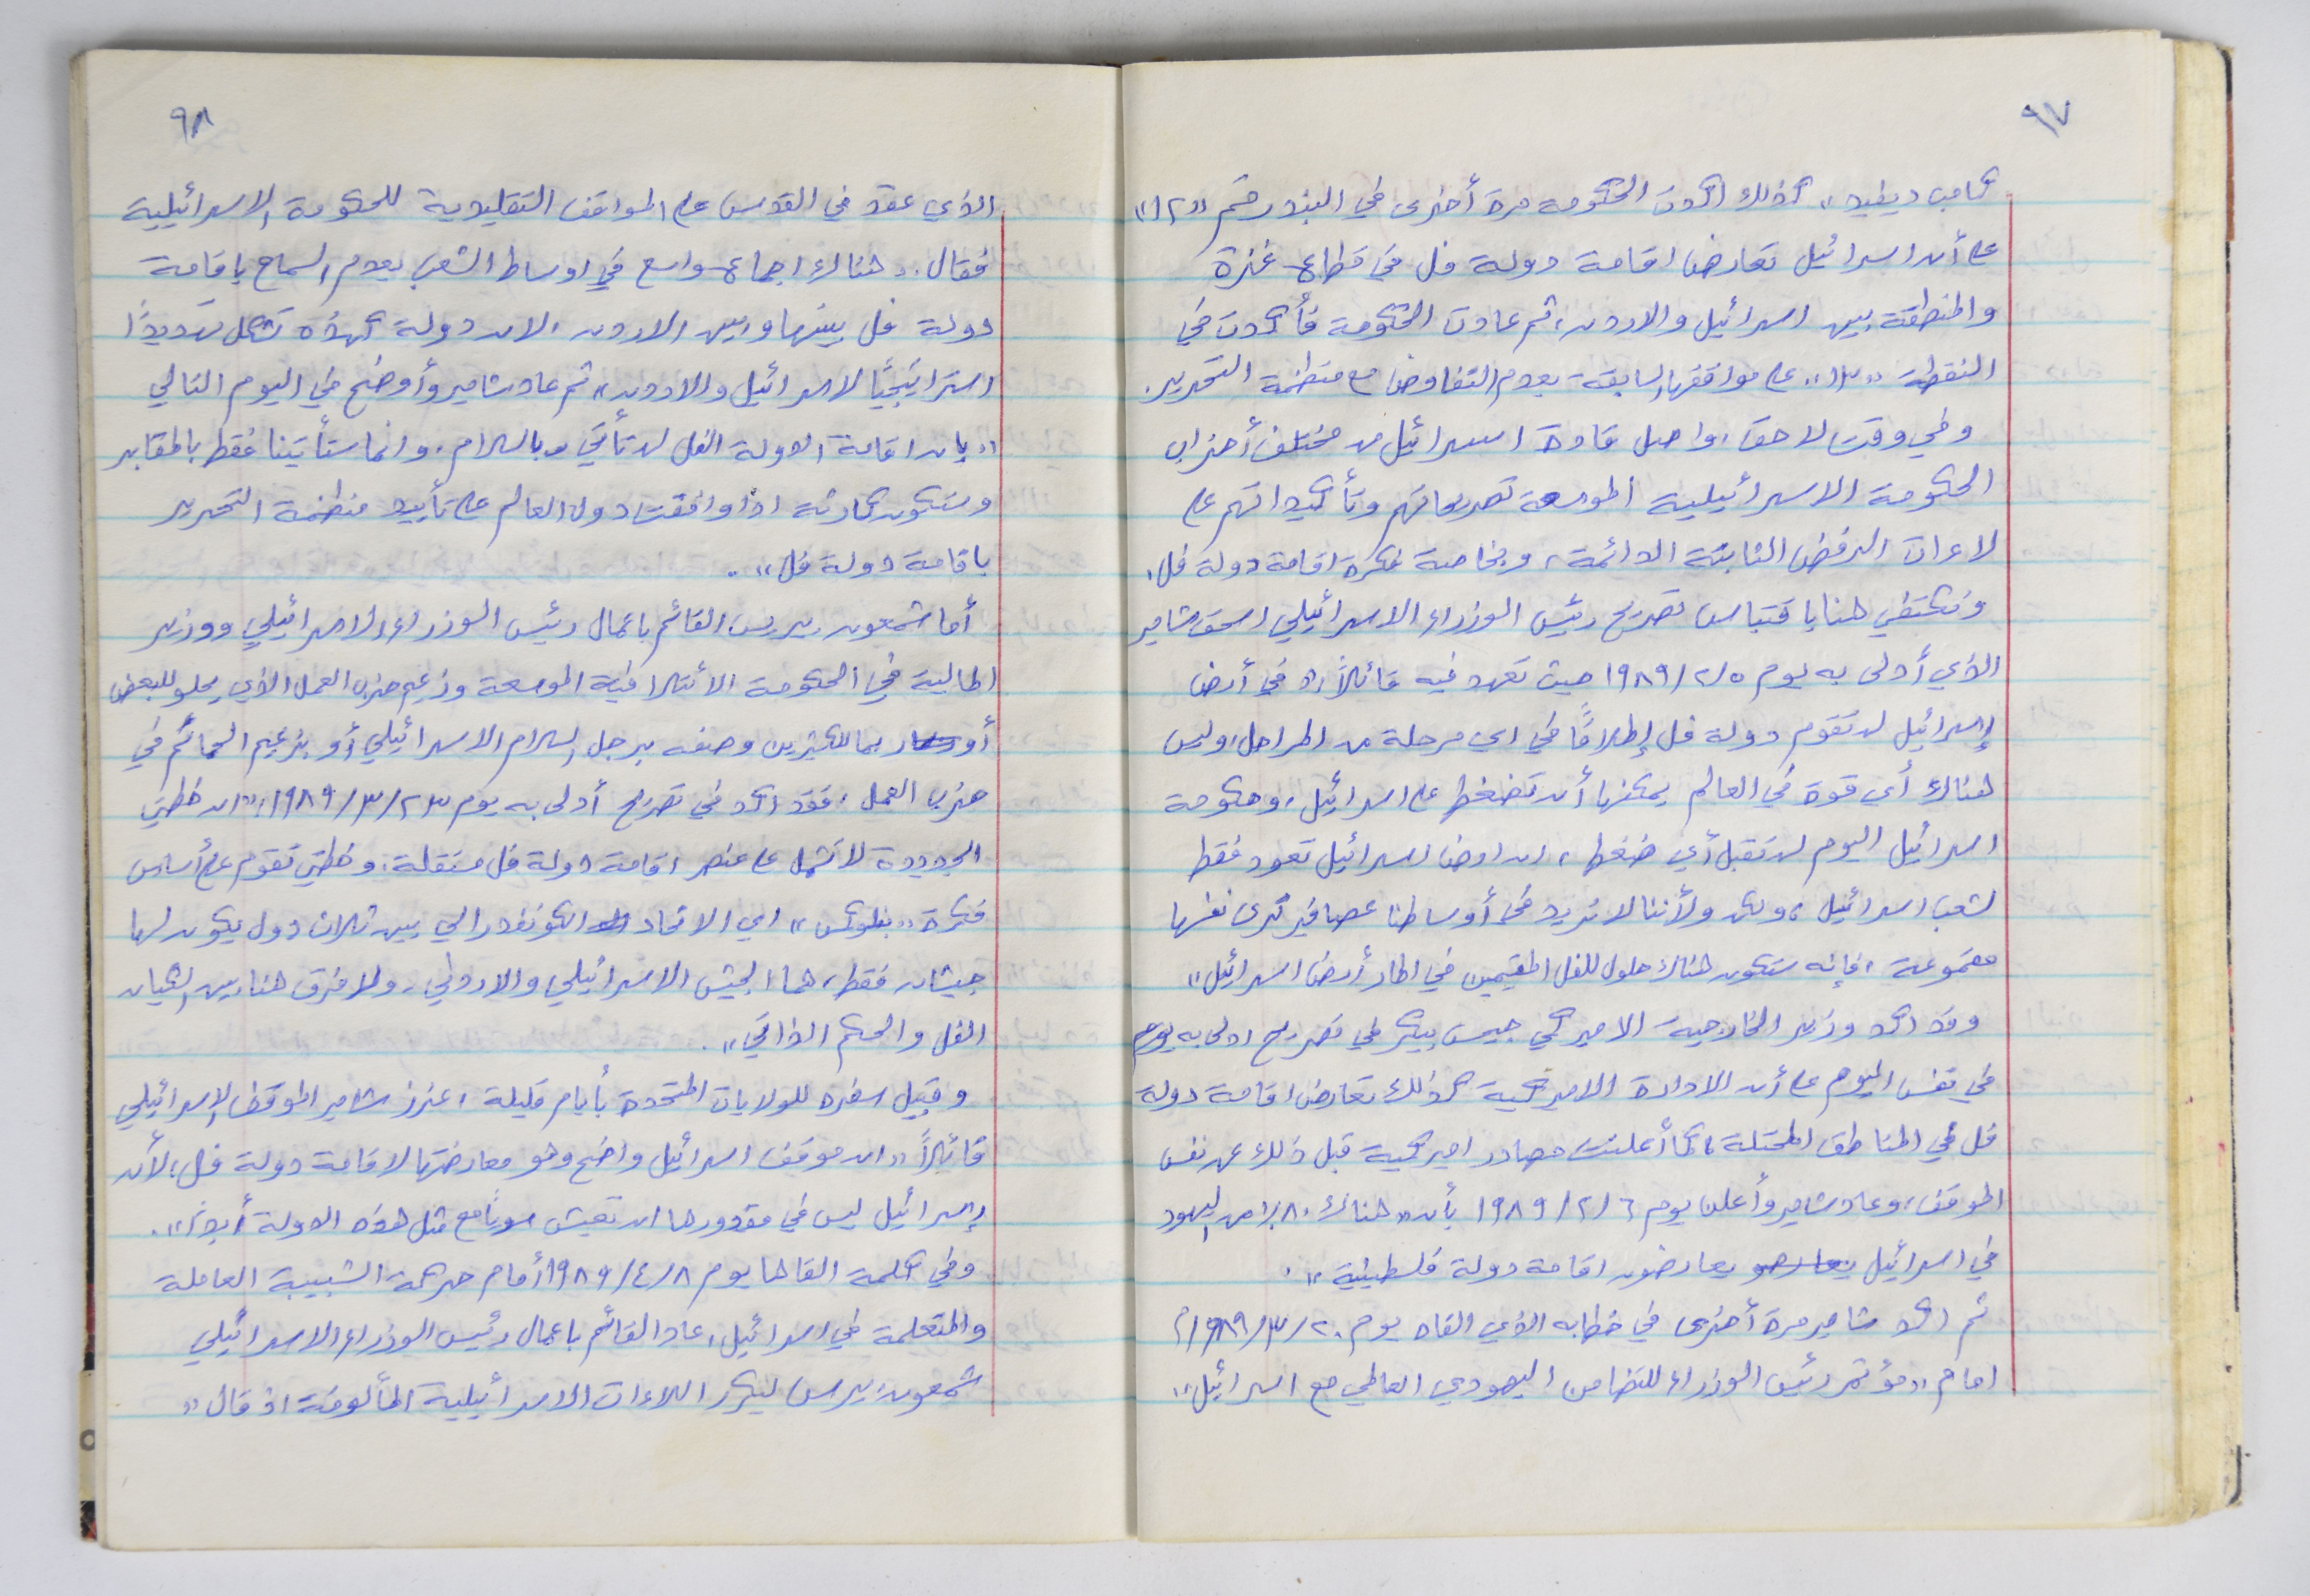 ٩٧
كامب ديفيد» كذلك أكدت الحكومة مرة أخرى في البند رقم «١٢»
على أن اسرائيل تعارض اقامة دولة فل في قطاع غزة
والمنطقة بين اسرائيل والاردن، ثم عادت الحكومة فأكدت في
النقطة «١٣» على مواقفها السابقة بعدم التفاوض مع منظمة التحرير.
وفي وقت لاحق، واصل قادة اسرائيل من مختلف أحزاب
الحكومة الاسرائيلية الموسعة تصريحاتهم وتأكيداتهم على
لاءات الرفض الثابتة الدائمة، وبخاصة فكرة اقامة دولة فل،
ونكتفي هنا باقتباس تصريح رئيس الوزراء الاسرائيلي اسحق شامير
الذي أدلى به يوم ٢/٥/ ١٩٨٩ حيث تعهد فيه قائلاً: «في أرض
إسرائيل لن تقوم دولة فل إطلاقًا في اي مرحلة من المراحل، وليس
هناك أي قوة في العالم يمكنها أن تضغط على اسرائيل، وحكومة
اسرائيل اليوم لن تقبل أي ضغط، ان ارض اسرائيل تعود فقط
لشعب اسرائيل، ولكن ولأننا لا نريد في أوساطنا عصافير ترى نفسها
مقموعة، فإنه ستكون هناك حلول للفل المقيمين في اطار أرض اسرائيل»
وقد اكد وزير الخارجية الاميركي جيمس بيكر في تصريح ادلى به يوم
في نفس اليوم على أن الادارة الاميركية كذلك تعارض اقامة دولة
فل في المناطق المحتلة، كما أعلنت مصادر اميركية قبل ذلك عن نفس
الموقف، وعاد شامير وأعلن يوم ٦/ ٢/ ١٩٨٩ بأن «هناك ٨٠٪ من اليهود
في اسرائيل يعارضون اقامة دولة فلسطينية».
ثم اكد شامير مرة أخرى في خطابه الذي القاه يوم ٢٠/ ٣/ ١٩٨٩م
امام «مؤتمر رئيس الوزراء للتضامن اليهودي العالمي مع اسرائيل»
٩٨
الذي عقد في القدس على المواقف التقليدية للحكومة الاسرائيلية
فقال: «هناك اجماع واسع في اوساط الشعب بعدم السماح باقامة
دولة فل بينها وبين الاردن، لان دولة كهذه تشكل تهديدًا
استراتيجيًا لاسرائيل والاردن» ثم عاد شامير وأوضح في اليوم التالي
«بان اقامة الدولة الفل لن تأتي بالسلام، وانما ستأتينا فقط بالمقابر
وستكون كارثة اذا وافقت دول العالم على تأييد منظمة التحرير
باقامة دولة فل».
أما شمعون بيريس القائم باعمال رئيس الوزراء الاسرائيلي ووزير
المالية في الحكومة الأئتلافية الموسعة وزعيم حزب العمل الذي يحلو للبعض
أو ربما للكثيرين وصفه برجل السلام الاسرائيلي أو بزعيم الحمائم في
حزب العمل، فقد اكد في تصريح أدلى به يوم ٢٣/ ٣/ ١٩٨٩، «ان خطتي
الجديدة لا تشمل على عنصر اقامة دولة فل مستقلة، وخطتي تقوم على أساس
فكرة «بنلوكس» اي الاتحاد الكونفدرالي بين ثلاث دول يكون لها
جيشان فقط، هما الجيش الاسرائيلي والاردني، ولا فرق هنا بين الكيان
الفل والحكم الذاتي».
وقبيل سفره للولايات المتحدة بأيام قليلة، عزز شامير الموقف الاسرائيلي
قائلاً «ان موقف اسرائيل واضح وهو معارضتها لاقامة دولة فل، لأن
إسرائيل ليس في مقدورها ان تعيش سويًا مع مثل هذه الدولة أبدًا».
وفي كلمة القاها يوم ٨/ ٤/ ١٩٨٩ أمام حركة الشبيبة العاملة
والمتعلمة في اسرائيل، عاد القائم باعمال رئيس الوزراء الاسرائيلي
شمعون بيرس ليكرر اللاءات الاسرائيلية المألوفة اذ قال «